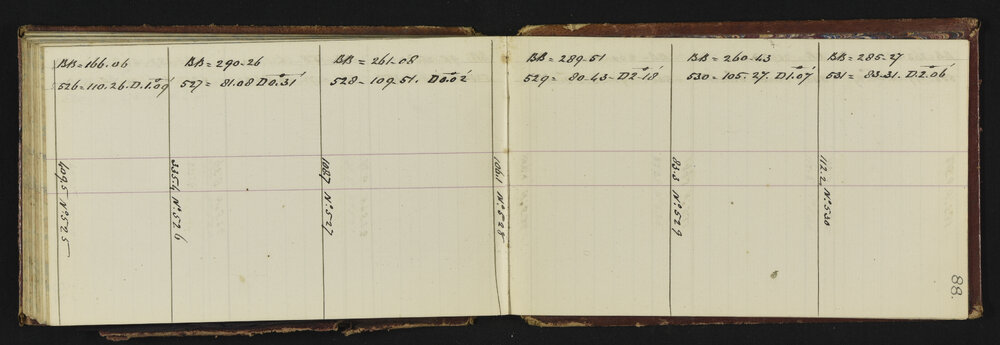 BB = 166.06
526 = 110.26. D.1°.09'
BB = 290.26
527 = 81.08 D 0°.31'
BB = 261.08
528 - 109.51. D 0°.02'
BB = 289.51
529 = 80.43 - D 2°.18'
BB = 260.43
530 = 105.27. D 1°.07'
BB = 285.27
531 = 83.31. D.2°.06'
409.5 No. 525
335.4 No. 526
108.7 No. 527
106.1 No. 528
83.5 No. 529
112.2 No. 530
88.